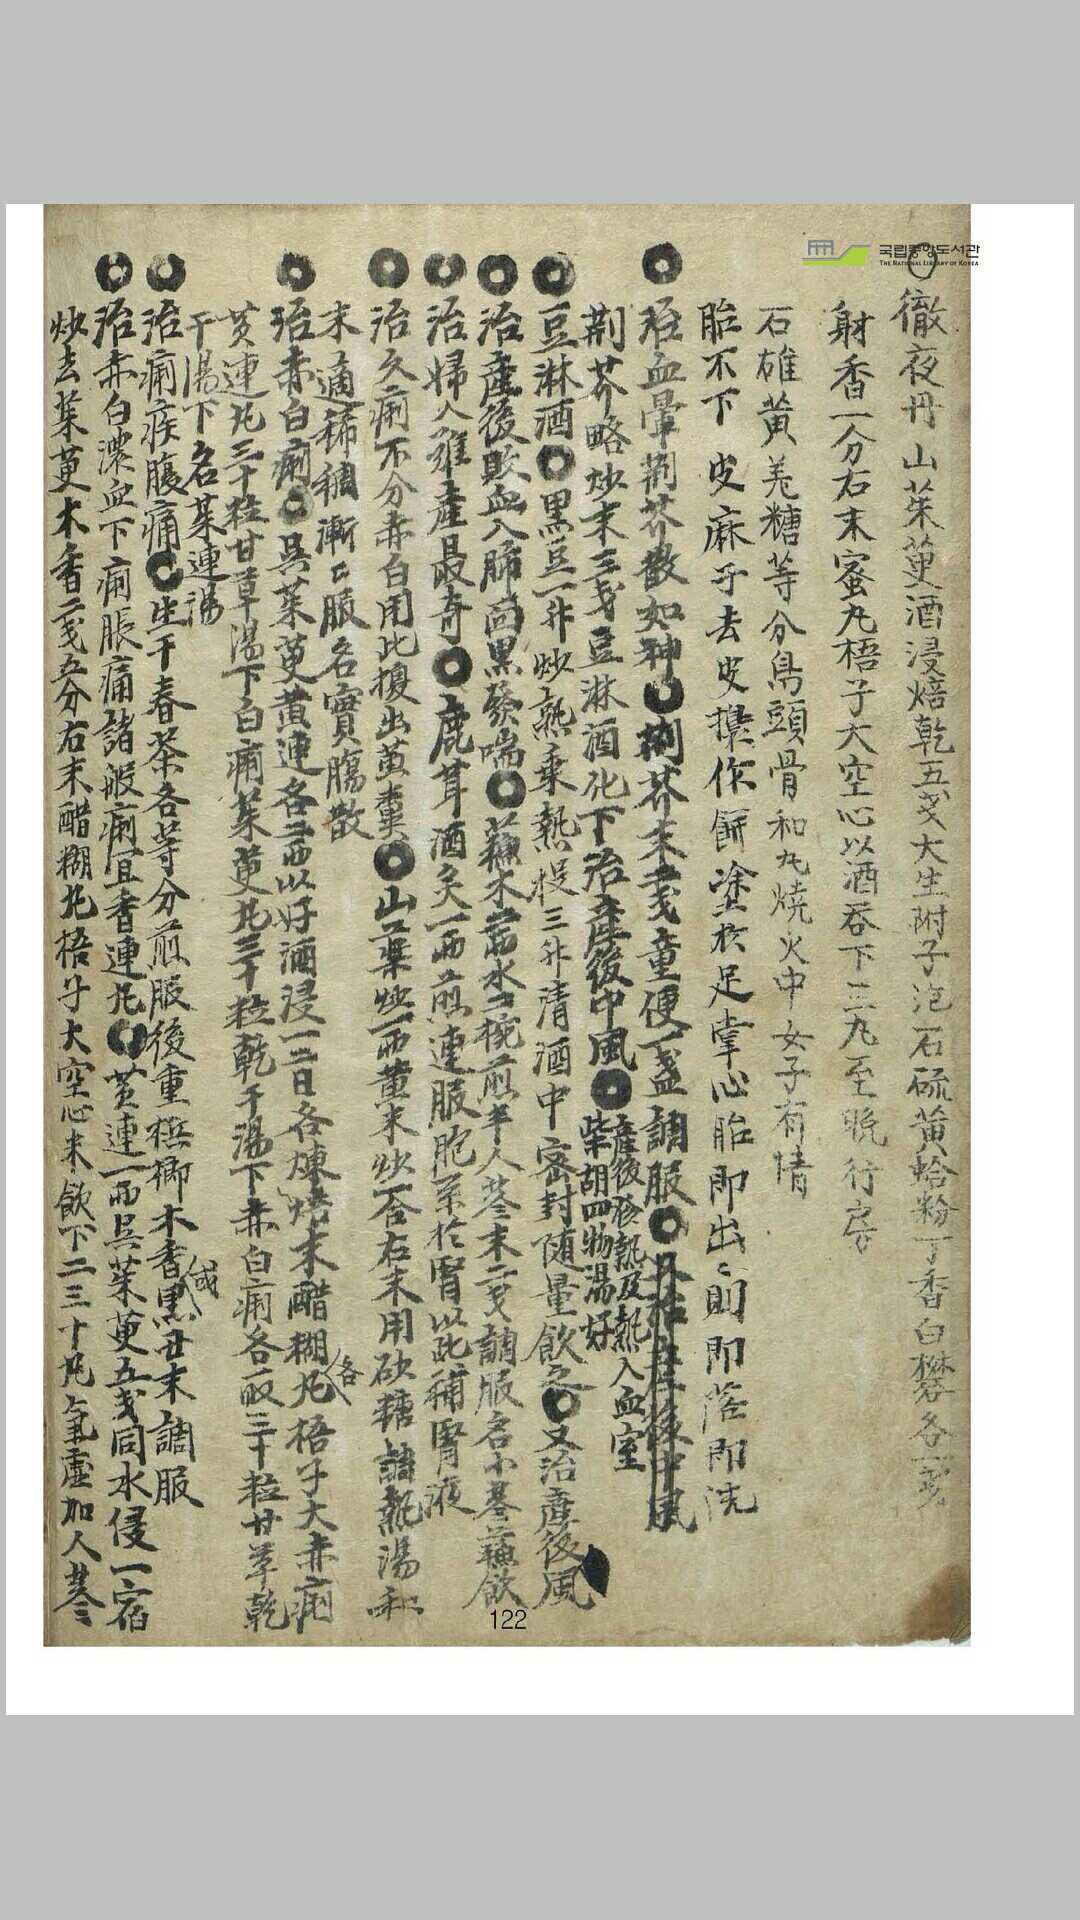 국립중앙도서관
THE NATIONAL LIBRARY OF KOREA
○徹夜丹 山茱萸酒浸焙乾五戔大生附子泡石硫黃蛤粉丁香白礬各一戔
射香一分右末蜜丸梧子大空心以酒吞下三九至晩行房
石雄黃羗糖等分烏頭骨和丸燒火中女子有情
胎不下 皮麻子去皮擣作餅塗於足掌心胎即出出則即落即洗
治血暈荊芥散如神 荊芥末二戔童便一盞調服
荊芥略炒末三戔豆淋酒化下治産後中風 産後發熱及熱入血室
柴胡四物湯好
豆淋酒 黑豆一升炒熟乘熱投三升清酒中密封随量飮之 又治産後風
治産後敗血入肺面黑發喘 蘇木二兩水二椀煎半人參末二戔調服名小參蘇飮
治婦人難産最奇 鹿茸酒炙一兩煎連服胞系於腎以此補腎液
治久痢不分赤白用此搜出黃糞 山藥炒一兩黃米炒一合右末用砂糖調熱湯和
末適稀稠漸漸服名實膓散
治赤白痢 吳茱萸黃連各二兩以好酒浸一二日各煉焙末醋糊各丸梧子大赤痢
黃連丸三十粒甘草湯下白痢茱萸丸三十粒乾干湯下赤白痢各取三十粒甘草乾
干湯下名茱連湯
治痢疾腹痛 生干春茶各等分煎服後重檳榔木香或黑丑末調服
治赤白濃血下痢脹痛諸般痢宜香連丸 黃連一兩吳茱萸五戔同水侵一宿
炒去茱萸木香二戔五分右末醋糊丸梧子大空心米飮下二三十丸氣虛加人參
122